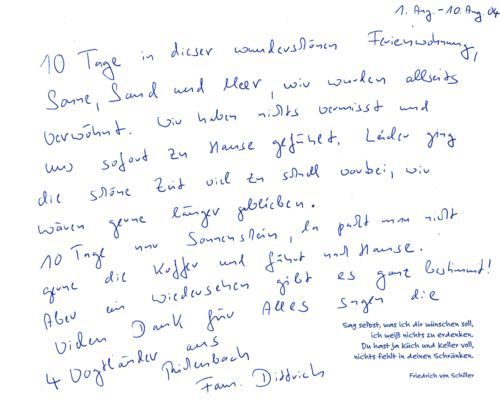 1. Aug. - 10. Aug. 04
10 Tage in dieser wunderschönen Ferienwohnung,
Sonne, Sand und Meer, wir wurden allseits
verwöhnt. Wir haben nichts vermisst und
uns sofort zu Hause gefühlt. Leider ging
die schöne Zeit viel zu schnell vorbei, wir
wären gerne länger geblieben.
10 Tage nur Sonnenschein, da packt man nicht
gerne die Koffer und fährt nach Hause.
Aber ein Wiedersehen gibt es ganz bestimmt!
Vielen Dank für Alles sagen die
4 Vogtländer aus
Fam. Dittrich
Sag selbst, was ich dir wünschen soll,
ich weiß nichts zu erdenken.
Du hast ja Küch und Keller voll,
nichts fehlt in deinen Schränken.
Friedrich von Schiller